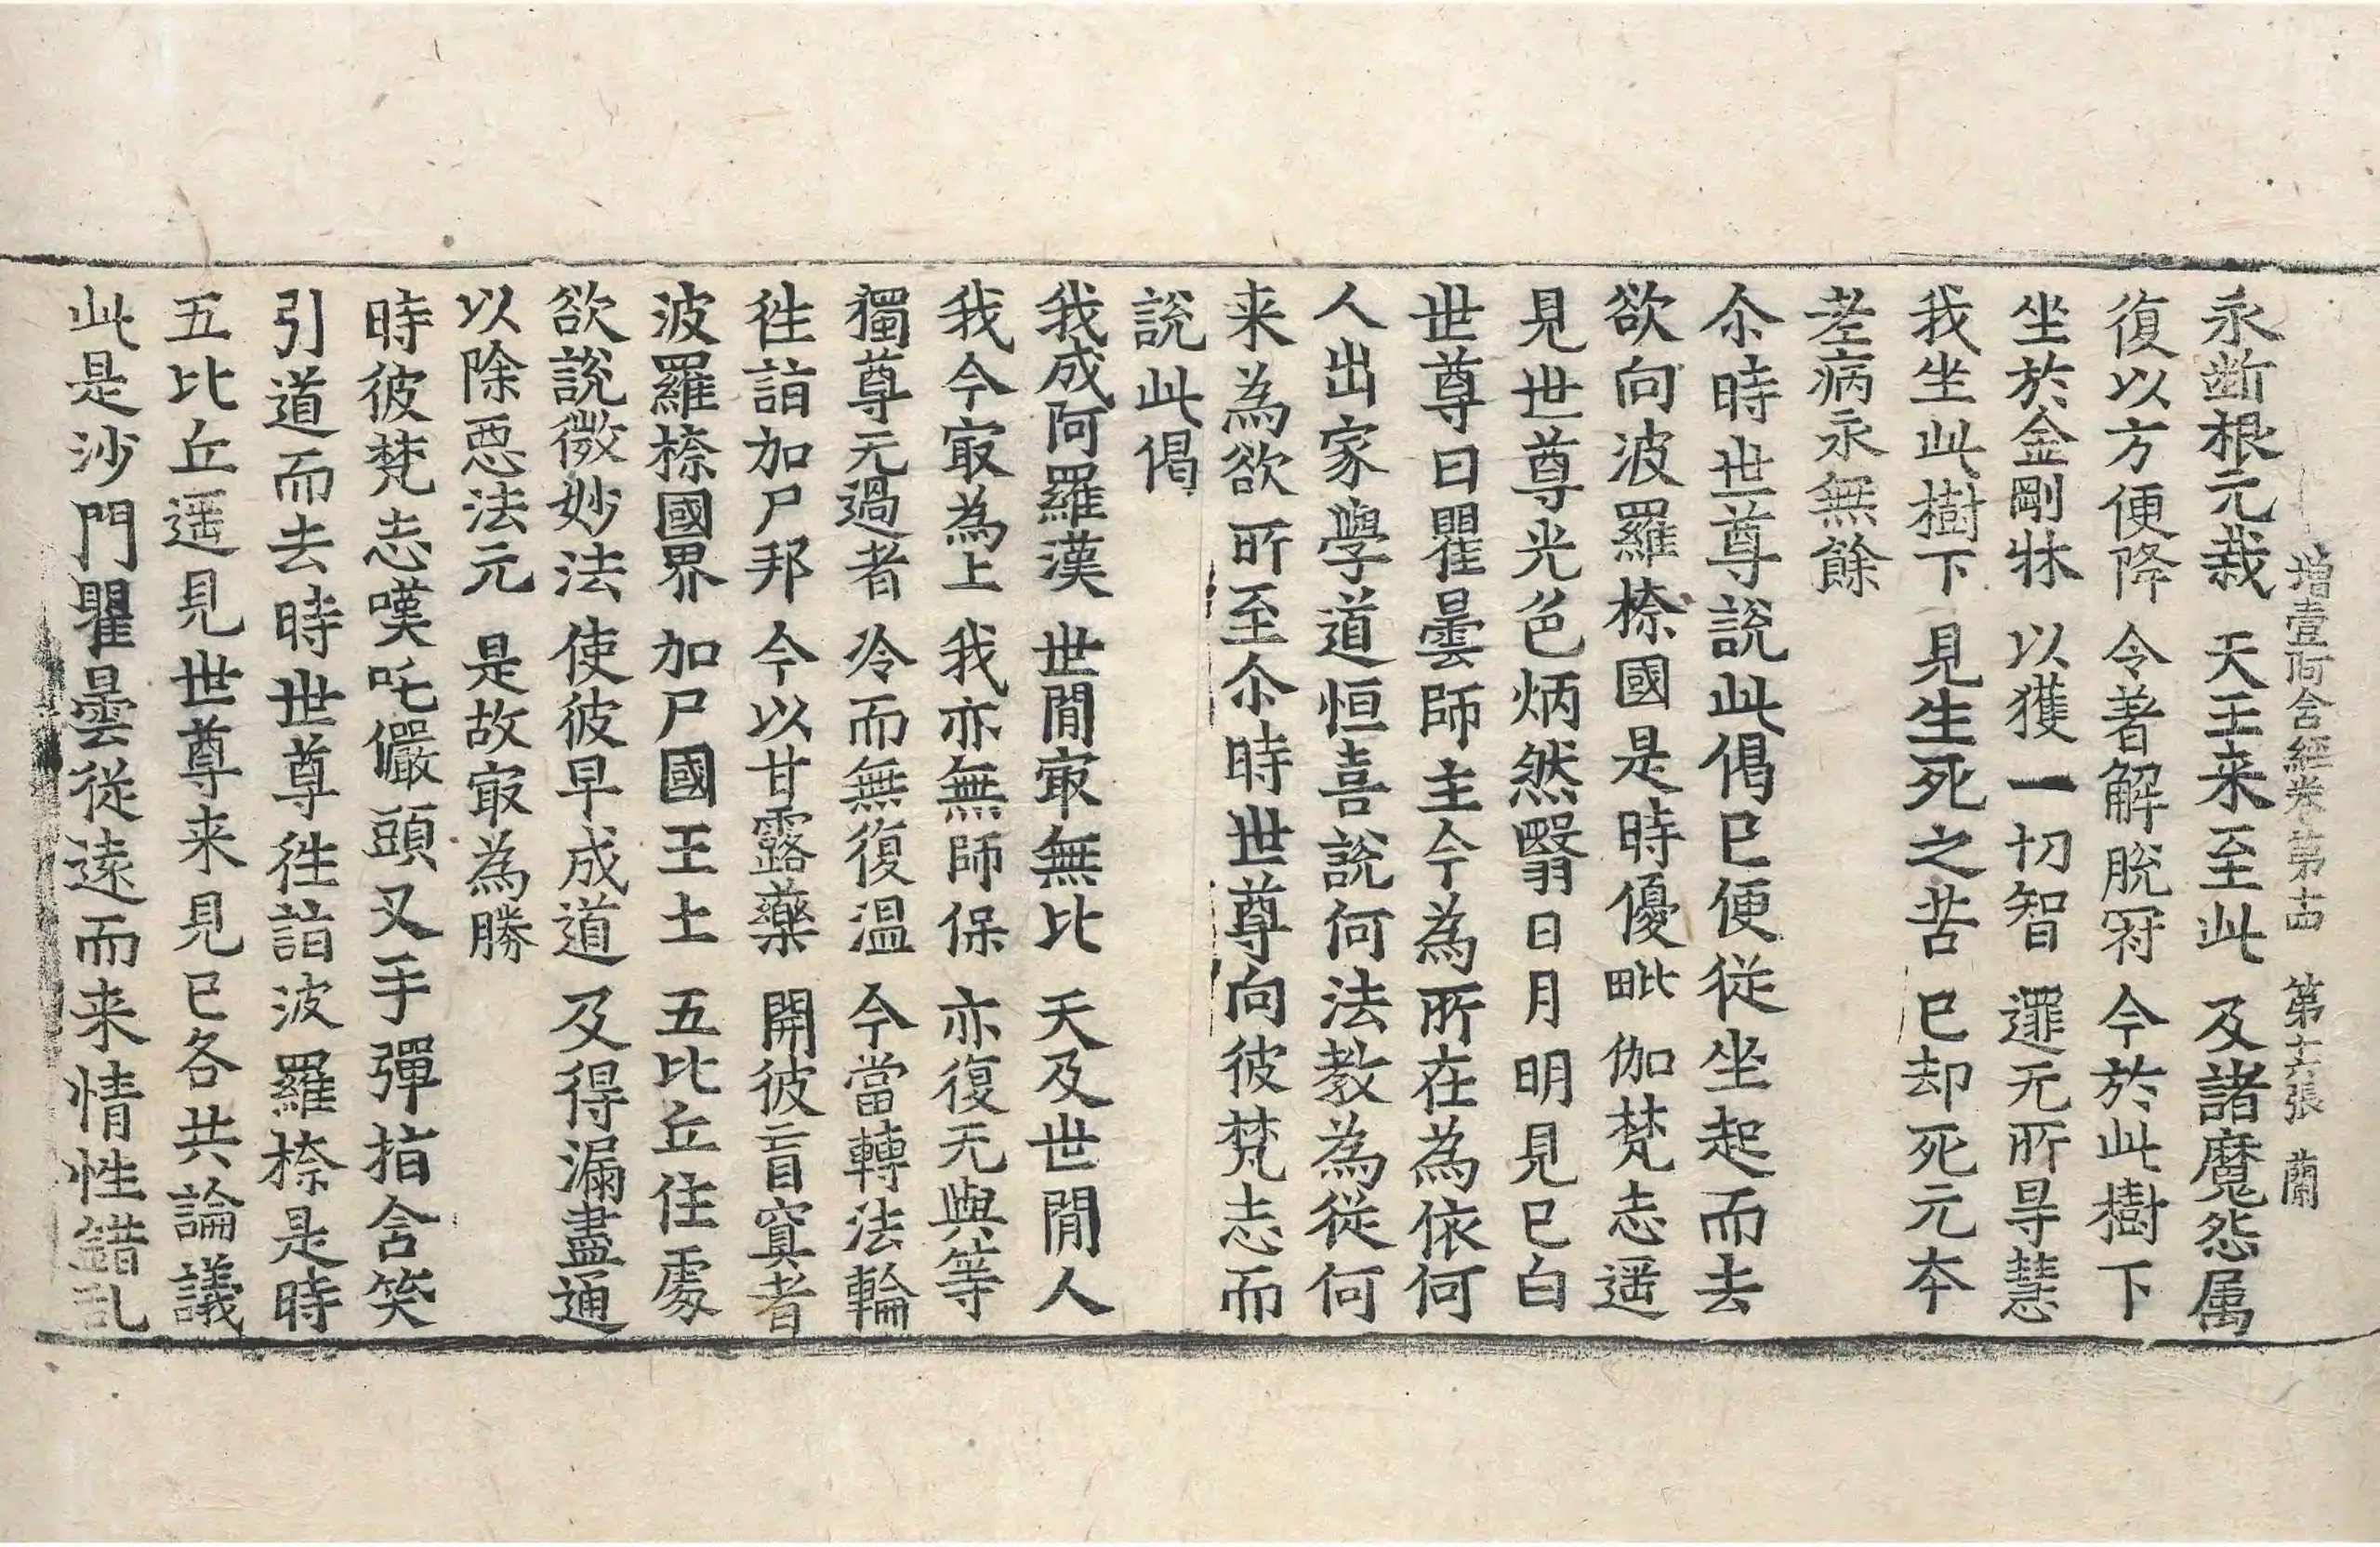 增壹阿含經卷第十四 第十六張 蘭
永断根元栽 天王来至此 及諸魔怨属
復以方便降 令著解脫冠 今於此樹下
坐於金剛牀 以獲一切智 逮无所㝵慧
我坐此樹下 見生死之苦 已却死元夲
老病永無餘
尒時世尊說此偈已便從坐起而去
欲向波羅㮈國是時優毗伽梵志遥
見世尊光色炳然翳日月明見已白
世尊曰瞿曇師主今為所在為依何
人出家學道恒喜說何法教為從何
来為欲所至尒時世尊向彼梵志而
說此偈
我成阿羅漢 世閒㝡無比 天及世閒人
我今㝡為上 我亦無師保 亦復无與等
獨尊无過者 冷而無復温 今當轉法輪
徃詣加尸邦 今以甘露藥 開彼盲冥者
波羅㮈國界 加尸國王土 五比丘住處
欲說微妙法 使彼早成道 及得漏盡通
以除惡法元 是故㝡為勝
時彼梵志嘆吒儼頭叉手彈指含笑
引道而去時世尊徃詣波羅㮈是時
五比丘遥見世尊来見已各共論議
此是沙門瞿曇從遠而来情性錯乱